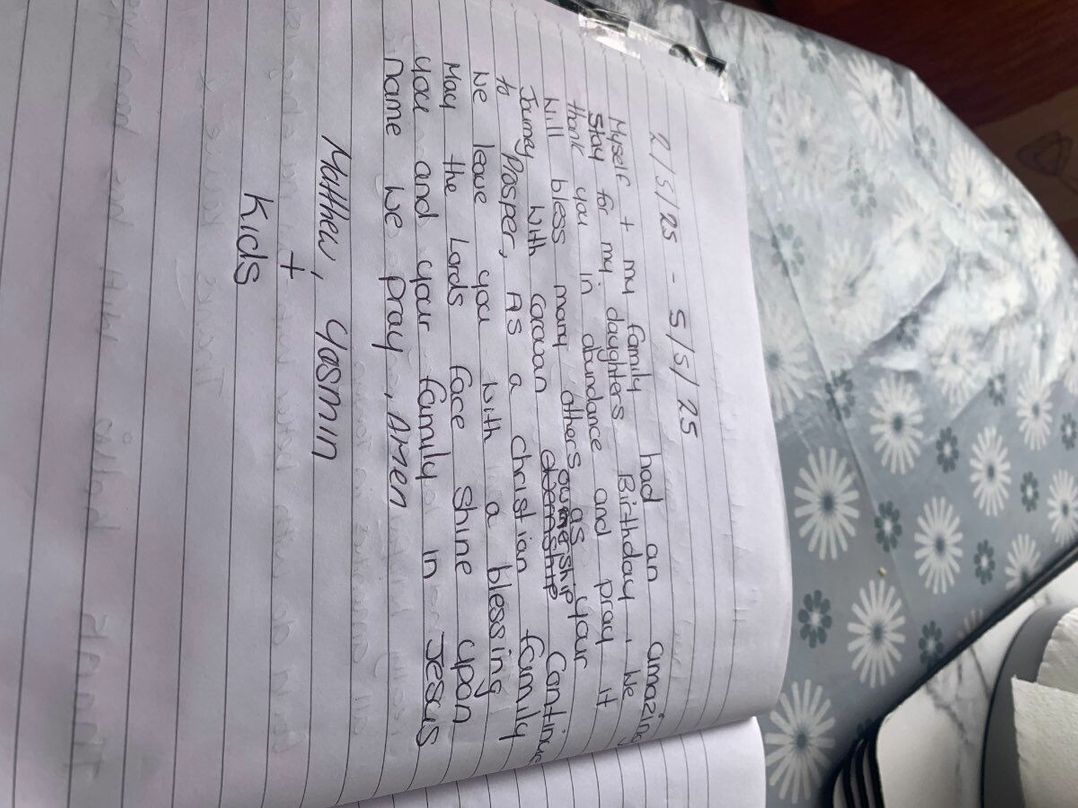 2/5/25 - 5/5/25
Myself + my family had an amazing
Stay for my daughters Birthday, We
thank you in abundance and pray it
Will bless many others as your
Journey with caravan ownership Continue
to Prosper, As a christian family
We leave you with a blessing
May the Lords face shine upon
you and your family in Jesus
name we pray, Amen
Matthew, Yasmin
+
Kids